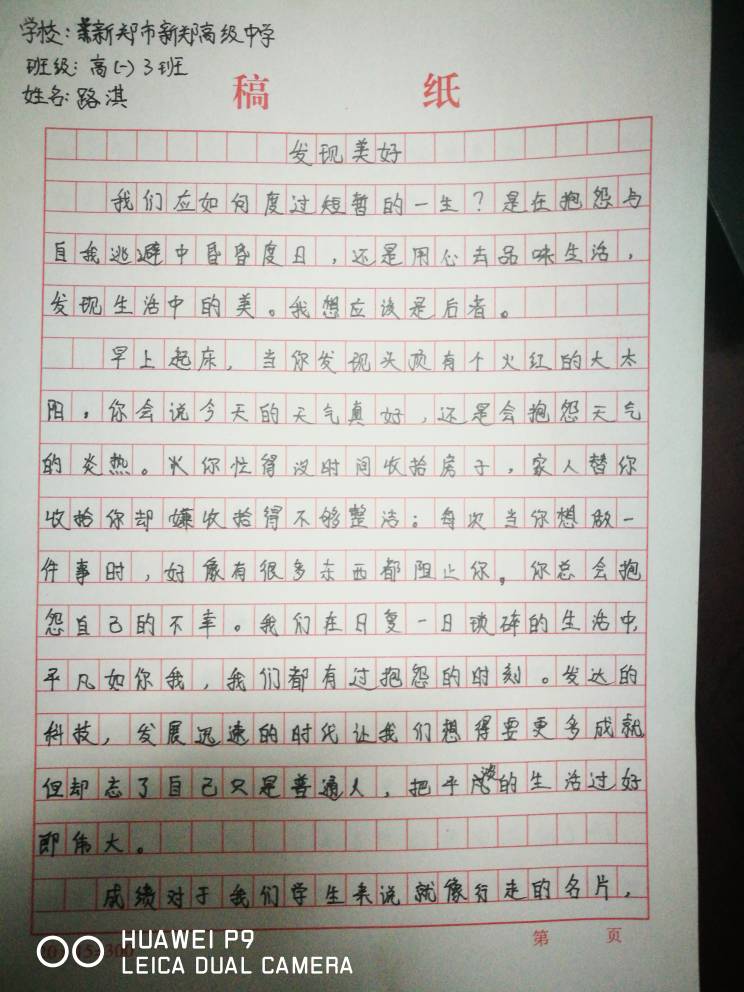 学校:新郑市新郑高级中学
班级:高(一)3班
姓名:路淇
稿 纸
发现美好
我们应如何度过短暂的一生?是在抱怨与
自我逃避中昏昏度日,还是用心去品味生活,
发现生活中的美。我想应该是后者。
早上起床,当你发现头顶有个火红的大太
阳,你会说今天的天气真好,还是会抱怨天气
的炎热。你忙得没时间收拾房子,家人替你
收拾你却嫌收拾得不够整洁;每次当你想做一
件事时,好像有很多东西都阻止你。你总会抱
怨自己的不幸。我们在日复一日琐碎的生活中,
平凡如你我,我们都有过抱怨的时刻。发达的
科技,发展迅速的时代让我们想得要更多成就
但却忘了自己只是普通人,把平淡的生活过好
即伟大。
成绩对于我们学生来说就像行走的名片,
第 页
HUAWEI P9
LEICA DUAL CAMERA